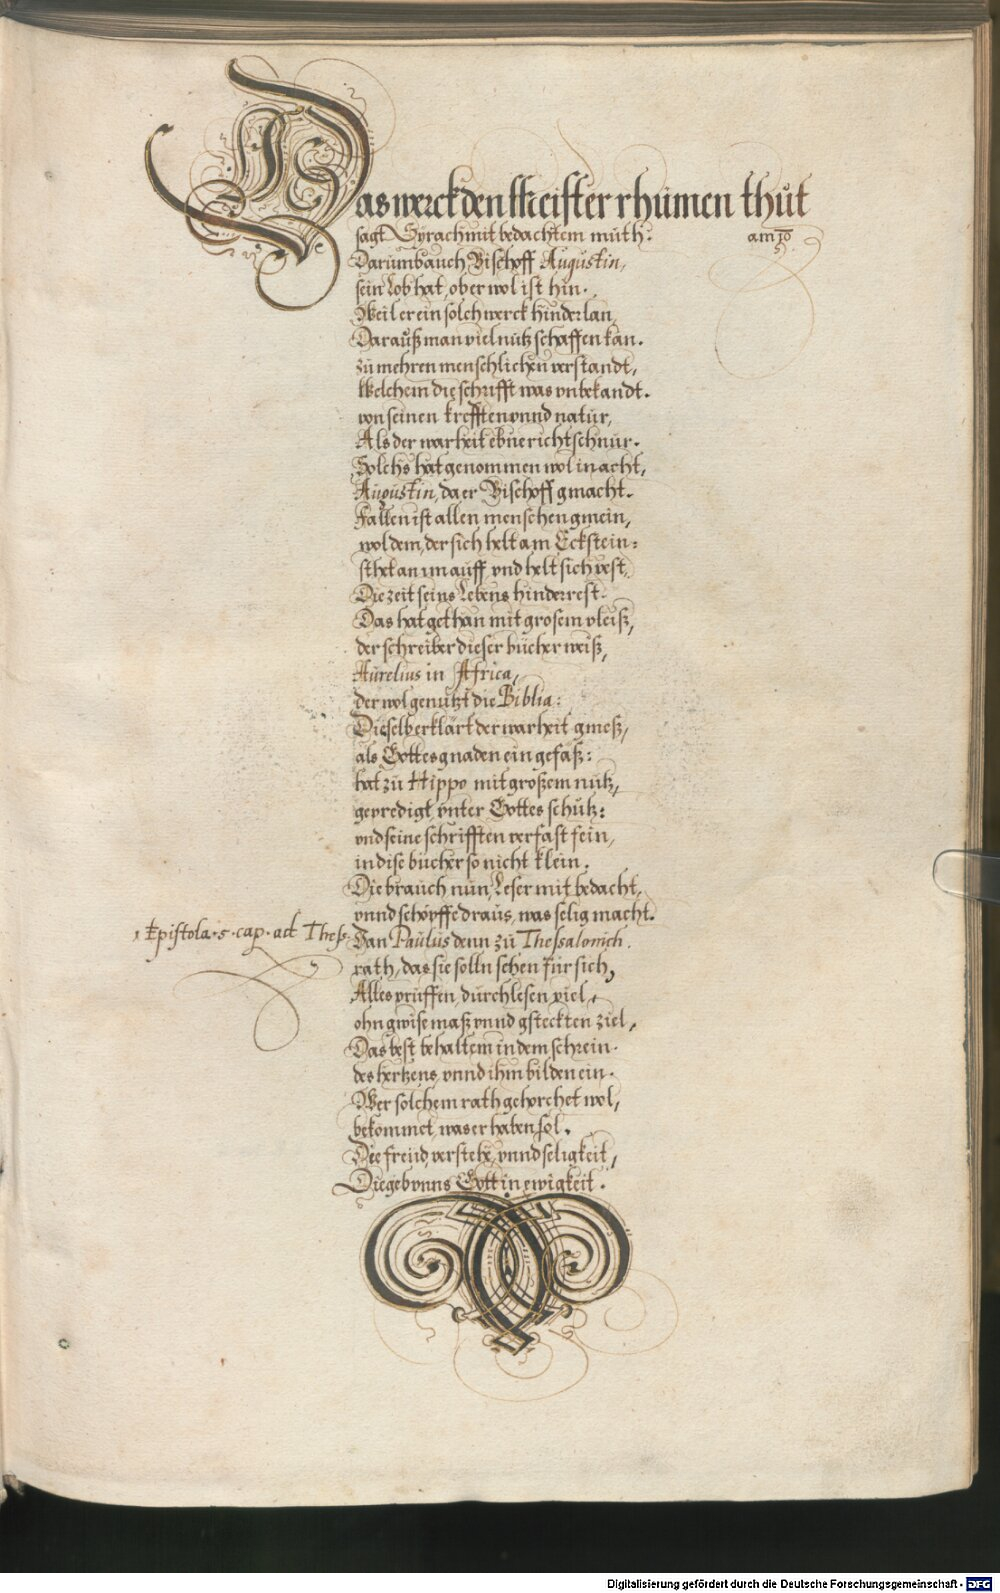 Das werck den Meister rhümen thüt
sagt Syrach mit bedachtem müth: am 10
9.
Darümb auch Bischoff Augüstin,
sein Lob hat, ober wol ist hin.
Weil er ein solch werck hinderlan,
Daraüß man viel nütz schaffen kan.
zü mehren menschlichen verstandt,
Welchem die schrifft was vnbekandt.
von seinen krefften vnnd natür,
Als der warheit ebne richtschnür.
Solchs hat genommen wol in acht,
Augüstin, da er Bischoff gmacht.
Fallen ist allen menschen gmein,
wol dem, der sich helt am Eckstein:
sthet an im auff, vnd helt sich vest,
Die zeit seins Lebens hinderrest.
Das hat gethan mit grosem vleiß,
der schreiber dieser bücher weiß,
Aürelius in Africa,
der wol genützt die Biblia:
Dieselb erklärt der warheit gmeß,
als Gottes gnaden ein gefäß:
hat zü Hippo mit großem nütz,
gepredigt, vnter Gottes schütz:
vnd seine schrifften verfast fein,
in dise bücher so nicht klein.
Die braüch nün, Leser mit bedacht,
vnnd schöpffe draüs, was selig macht.
1 Epistola. 5. cap. ad Thess. Dan Paülus denn zü Thessalonich.
rath, das sie solln sehen für sich,
Alles prüffen, dürchlesen viel,
ohn gwise maß vnnd gsteckten ziel,
Das best behalten in dem schrein.
des hertzens, vnnd ihm bilden ein.
Wer solchem rath gehorchet wol,
bekommet, was er haben sol.
Die freüd, verstehe, vnnd seligkeit,
Die geb vnns Gott in ewigkeit.
Digitalisierung gefördert durch die Deutsche Forschungsgemeinschaft - DFG